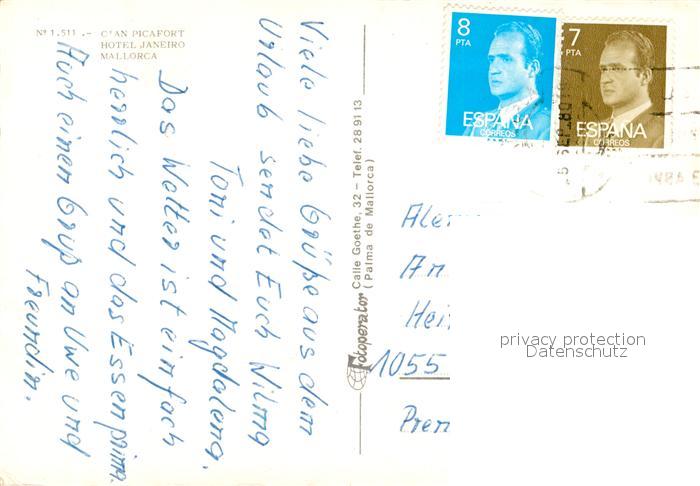 Nº 1.511 .- C'AN PICAFORT
HOTEL JANEIRO
MALLORCA
Viele liebe Grüße aus dem
Urlaub sendet Euch Wilma
Toni und Magdalena.
Das Wetter ist einfach
herrlich und das Essen prima.
Auch einen Gruß an Uwe und
Freundin.
Fotoperator Calle Goethe, 32 - Telef. 28 91 13
(Palma de Mallorca)
8 PTA
ESPAÑA
CORREOS
7 PTA
ESPAÑA
CORREOS
1055
privacy protection
Datenschutz